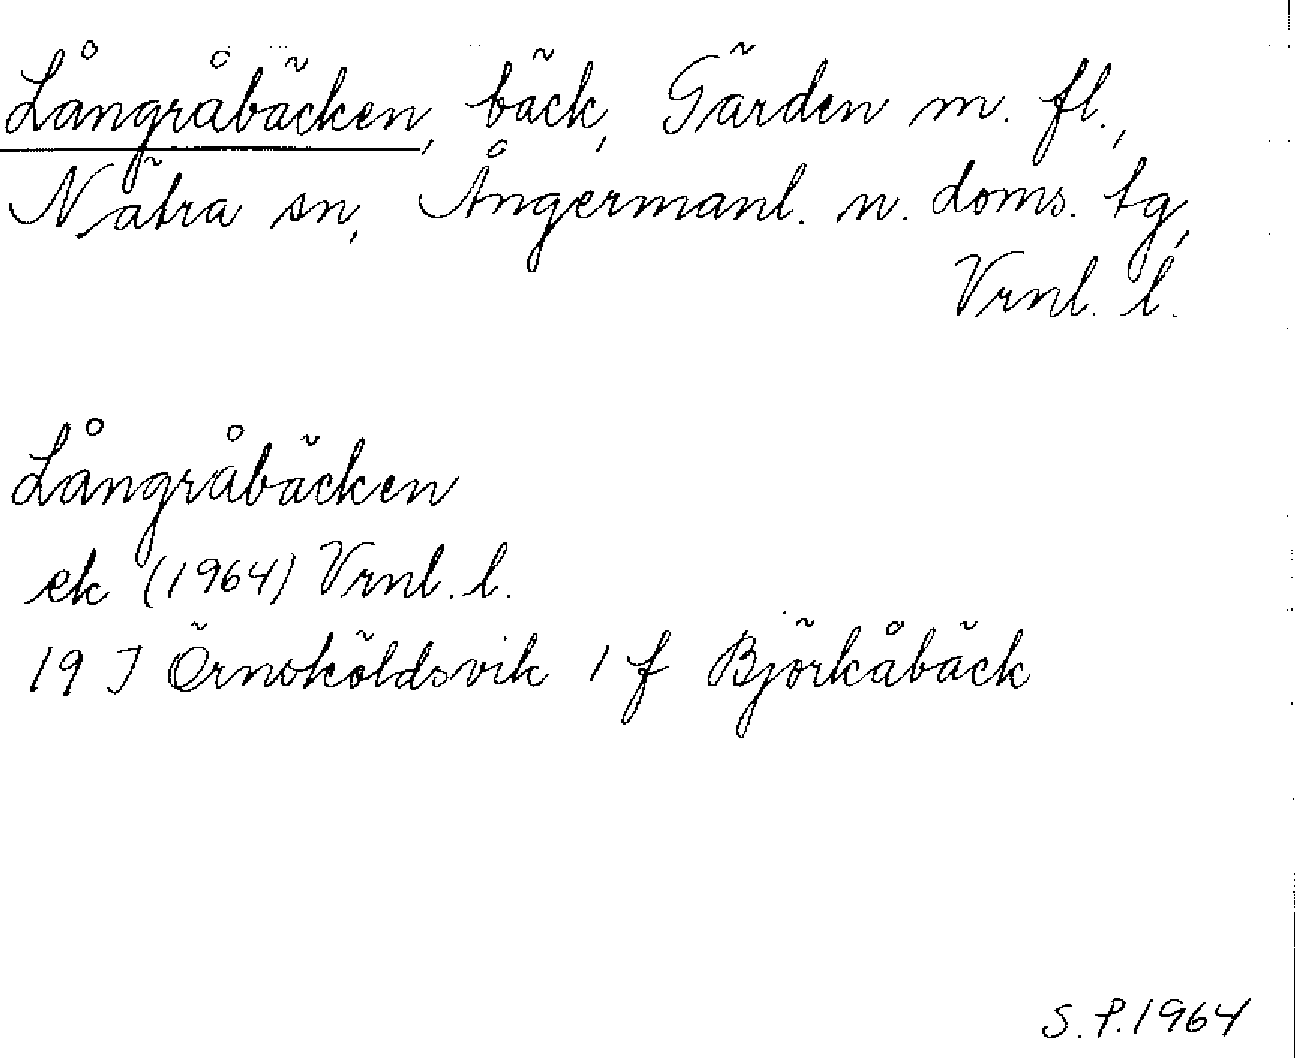 Långråbäcken, bäck, Gärden m. fl.,
Nätra sn, Ångermanl. n. doms. tg,
Vrnl. l.
Långråbäcken
ek (1964) Vrnl. l.
19 J Örnsköldsvik 1 f Björkåbäck
S.P. 1964